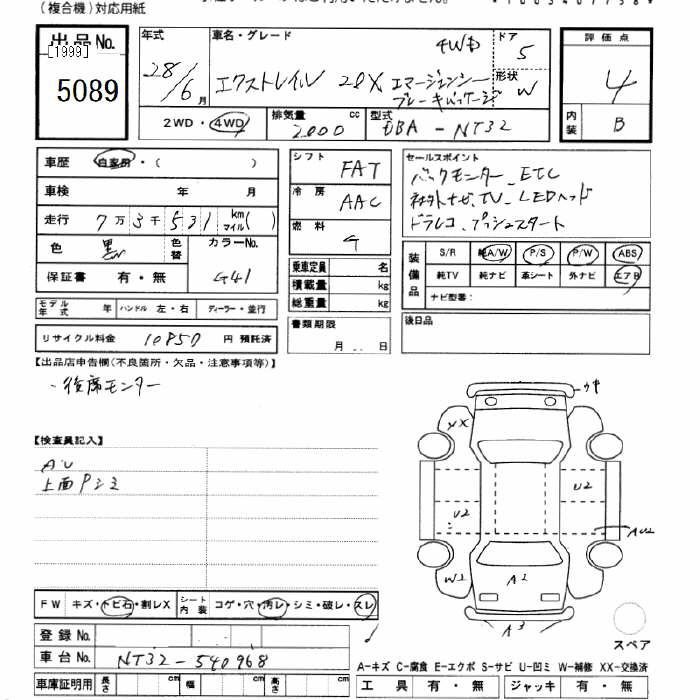 (複合機)対応用紙
出品No.
[1999]
5089
年式
28/6月
車名・グレード
4WD
エクストレイル 20X エマージェンシー
ブレーキパッケージ
ドア
5
形状
W
評価点
4
内装
B
2WD・4WD
排気量
2000 cc
型式
DBA-NT32
車歴 自家用・( )
車検 年 月
走行 7万3千531 km マイル( )
色 黒
色替
カラーNo.
G41
保証書 有・無
モデル年式 年 ハンドル 左・右 ディーラー・並行
リサイクル料金 10850 円 預託済
シフト FAT
冷房 AAC
燃料 G
乗車定員 名
積載量 kg
総重量 kg
書類期限
月 日
セールスポイント
バックモニター、ETC
社外ナビ、TV、LEDヘッド
ドラレコ、プッシュスタート
装備品
S/R 純A/W P/S P/W ABS
純TV 純ナビ 革シート 外ナビ エアB
ナビ型番:
後日品
【出品店申告欄(不良箇所・欠品・注意事項等)】
・後席モニター
【検査員記入】
AU
上面Pシミ
FW キズ・トビ石・割レX
シート内装 コゲ・穴・汚レ・シミ・破レ・スレ
登録No.
車台No. NT32-540968
車庫証明用 長さ cm 幅 cm 高さ cm
XX
U2
U2
AU2
W2
A2
A3
スペア
A-キズ C-腐食 E-エクボ S-サビ U-凹ミ W-補修 XX-交換済
工具 有・無 ジャッキ 有・無